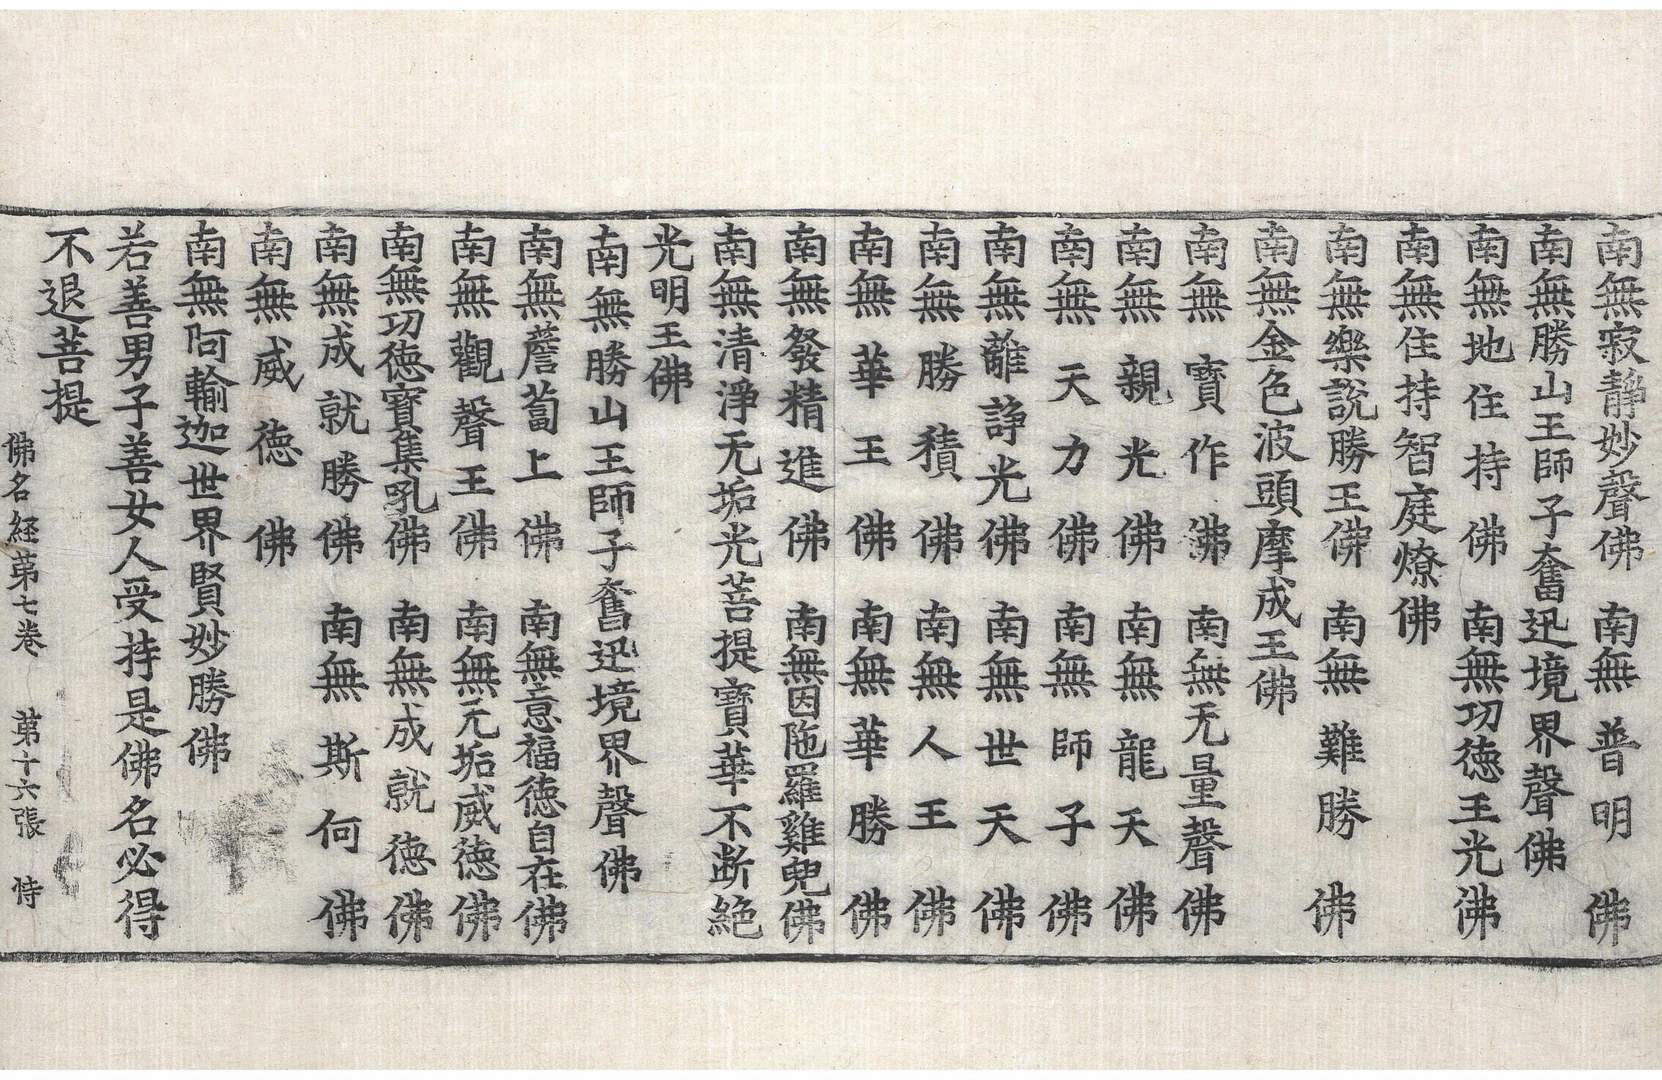 南無寂靜妙聲佛　南無普明佛
南無勝山王師子奮迅境界聲佛
南無地住持佛　南無功德王光佛
南無住持智庭燎佛
南無樂說勝王佛　南無難勝佛
南無金色波頭摩成王佛
南無寶作佛　南無无量聲佛
南無親光佛　南無龍天佛
南無天力佛　南無師子佛
南無離諍光佛　南無世天佛
南無勝積佛　南無人王佛
南無華王佛　南無華勝佛
南無發精進佛　南無因陁羅雞兜佛
南無清淨无垢光菩提寶華不断絕
光明王佛
南無勝山王師子奮迅境界聲佛
南無薝蔔上佛　南無意福德自在佛
南無觀聲王佛　南無无垢威德佛
南無功德寶集吼佛　南無成就德佛
南無成就勝佛　南無斯何佛
南無威德佛
南無阿輸迦世界賢妙勝佛
若善男子善女人受持是佛名必得
不退菩提
佛名経苐七卷　苐十六張　恃